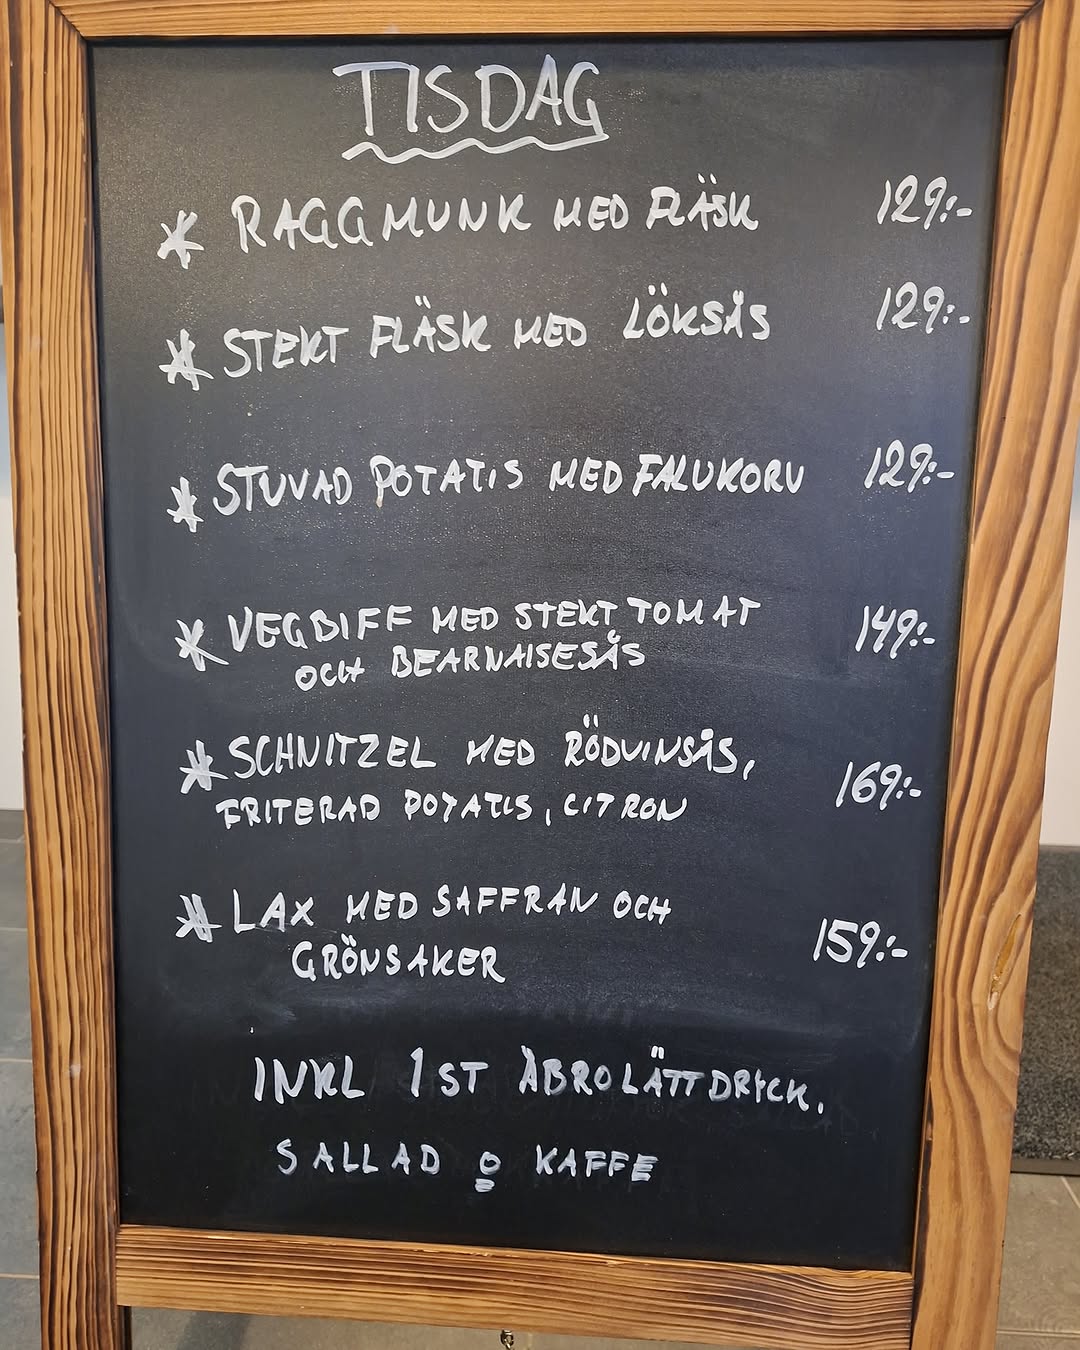 TISDAG
* RAGGMUNK MED FLÄSK 129:-
* STEKT FLÄSK MED LÖKSÅS 129:-
* STUVAD POTATIS MED FALUKORV 129:-
* VEGBIFF MED STEKT TOMAT 149:-
OCH BEARNAISESÅS
* SCHNITZEL MED RÖDVINSÅS, 169:-
FRITERAD POTATIS, CITRON
* LAX MED SAFFRAN OCH 159:-
GRÖNSAKER
INKL 1ST ÅBRO LÄTTDRYCK,
SALLAD o KAFFE